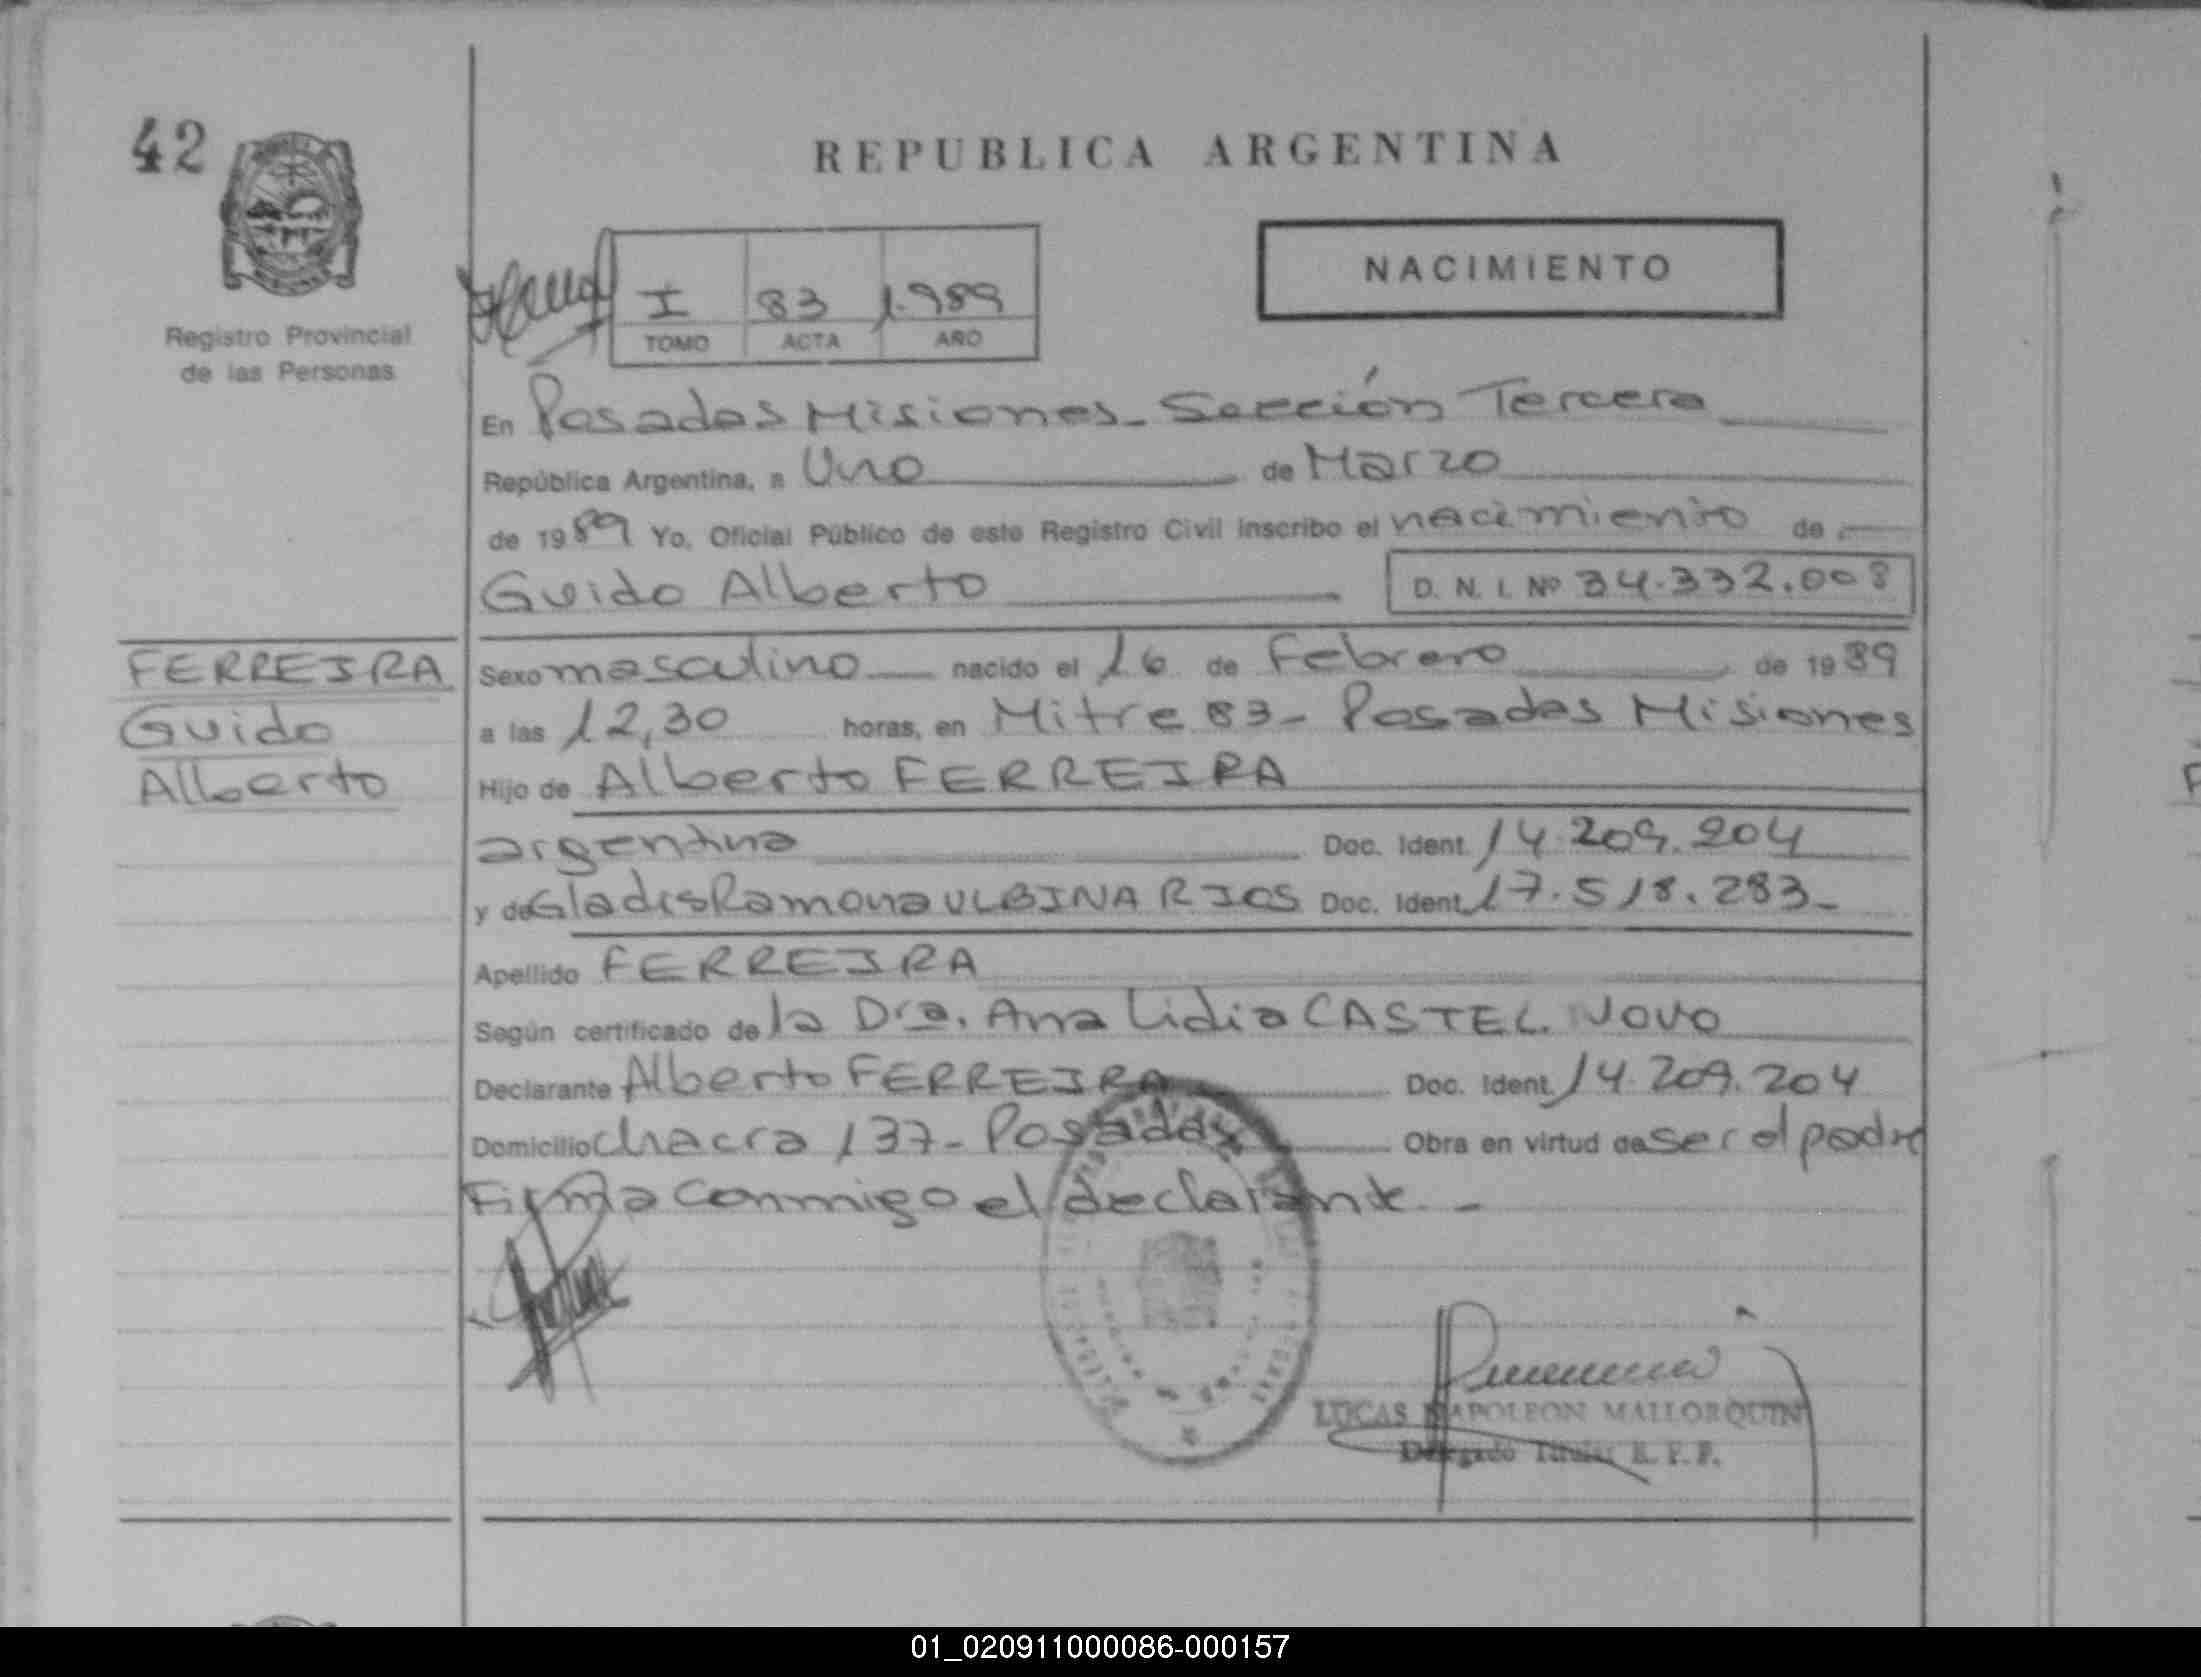 42
REPUBLICA ARGENTINA
NACIMIENTO
I 83 1.989
TOMO ACTA AÑO
Registro Provincial
de las Personas
En Posadas Misiones - Sección Tercera
República Argentina, a Uno de Marzo
de 1989 Yo, Oficial Público de este Registro Civil inscribo el nacimiento de
Guido Alberto D. N. I. Nº 34.332.008
FERREIRA
Guido
Alberto
Sexo masculino nacido el 16 de Febrero de 1989
a las 12,30 horas, en Mitre 83 - Posadas Misiones
Hijo de Alberto FERREIRA
argentina Doc. Ident. 14.209.204
y de Gladis Ramona ULBINA RIOS Doc. Ident. 17.518.283 -
Apellido FERREIRA
Según certificado de la Dra. Ana Lidia CASTEL NOVO
Declarante Alberto FERREIRA Doc. Ident. 14.209.204
Domicilio chacra 137 - Posadas Obra en virtud de ser el padre
Firma conmigo el declarante. -
LUCAS NAPOLEON MALLORQUIN
Delegado Titular R. P. P.
01_020911000086-000157